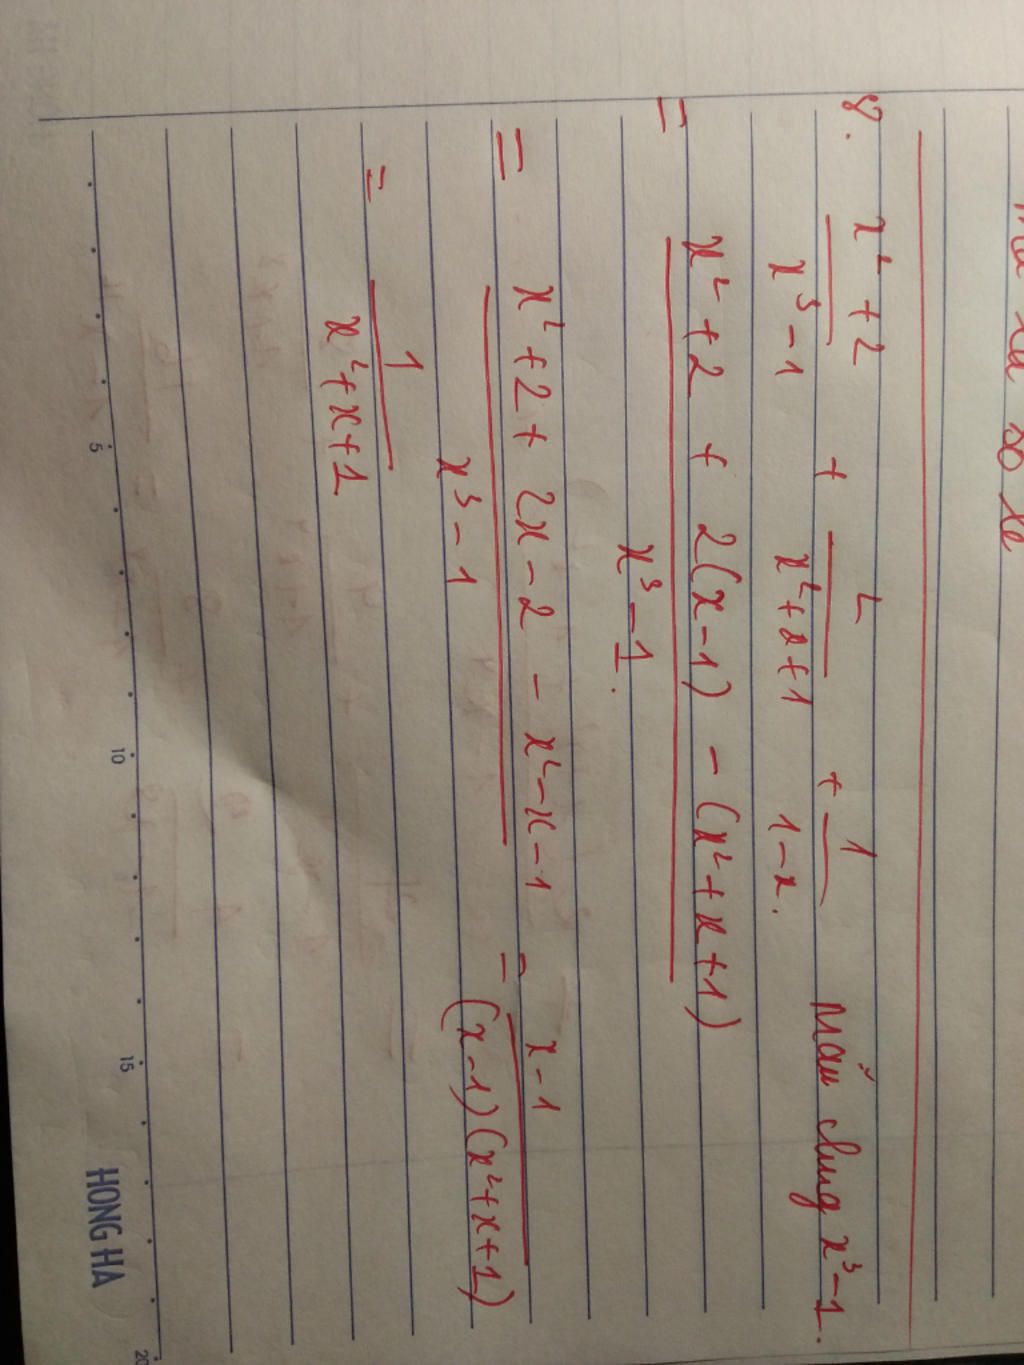 số xe
8. x² + 2 / x³ - 1 + 2 / x² + x + 1 + 1 / 1 - x. Mẫu chung x³ - 1.
= x² + 2 + 2(x - 1) - (x² + x + 1) / x³ - 1.
= x² + 2 + 2x - 2 - x² - x - 1 / x³ - 1 = x - 1 / (x - 1)(x² + x + 1)
= 1 / x² + x + 1
5 10 15 20
HONG HA